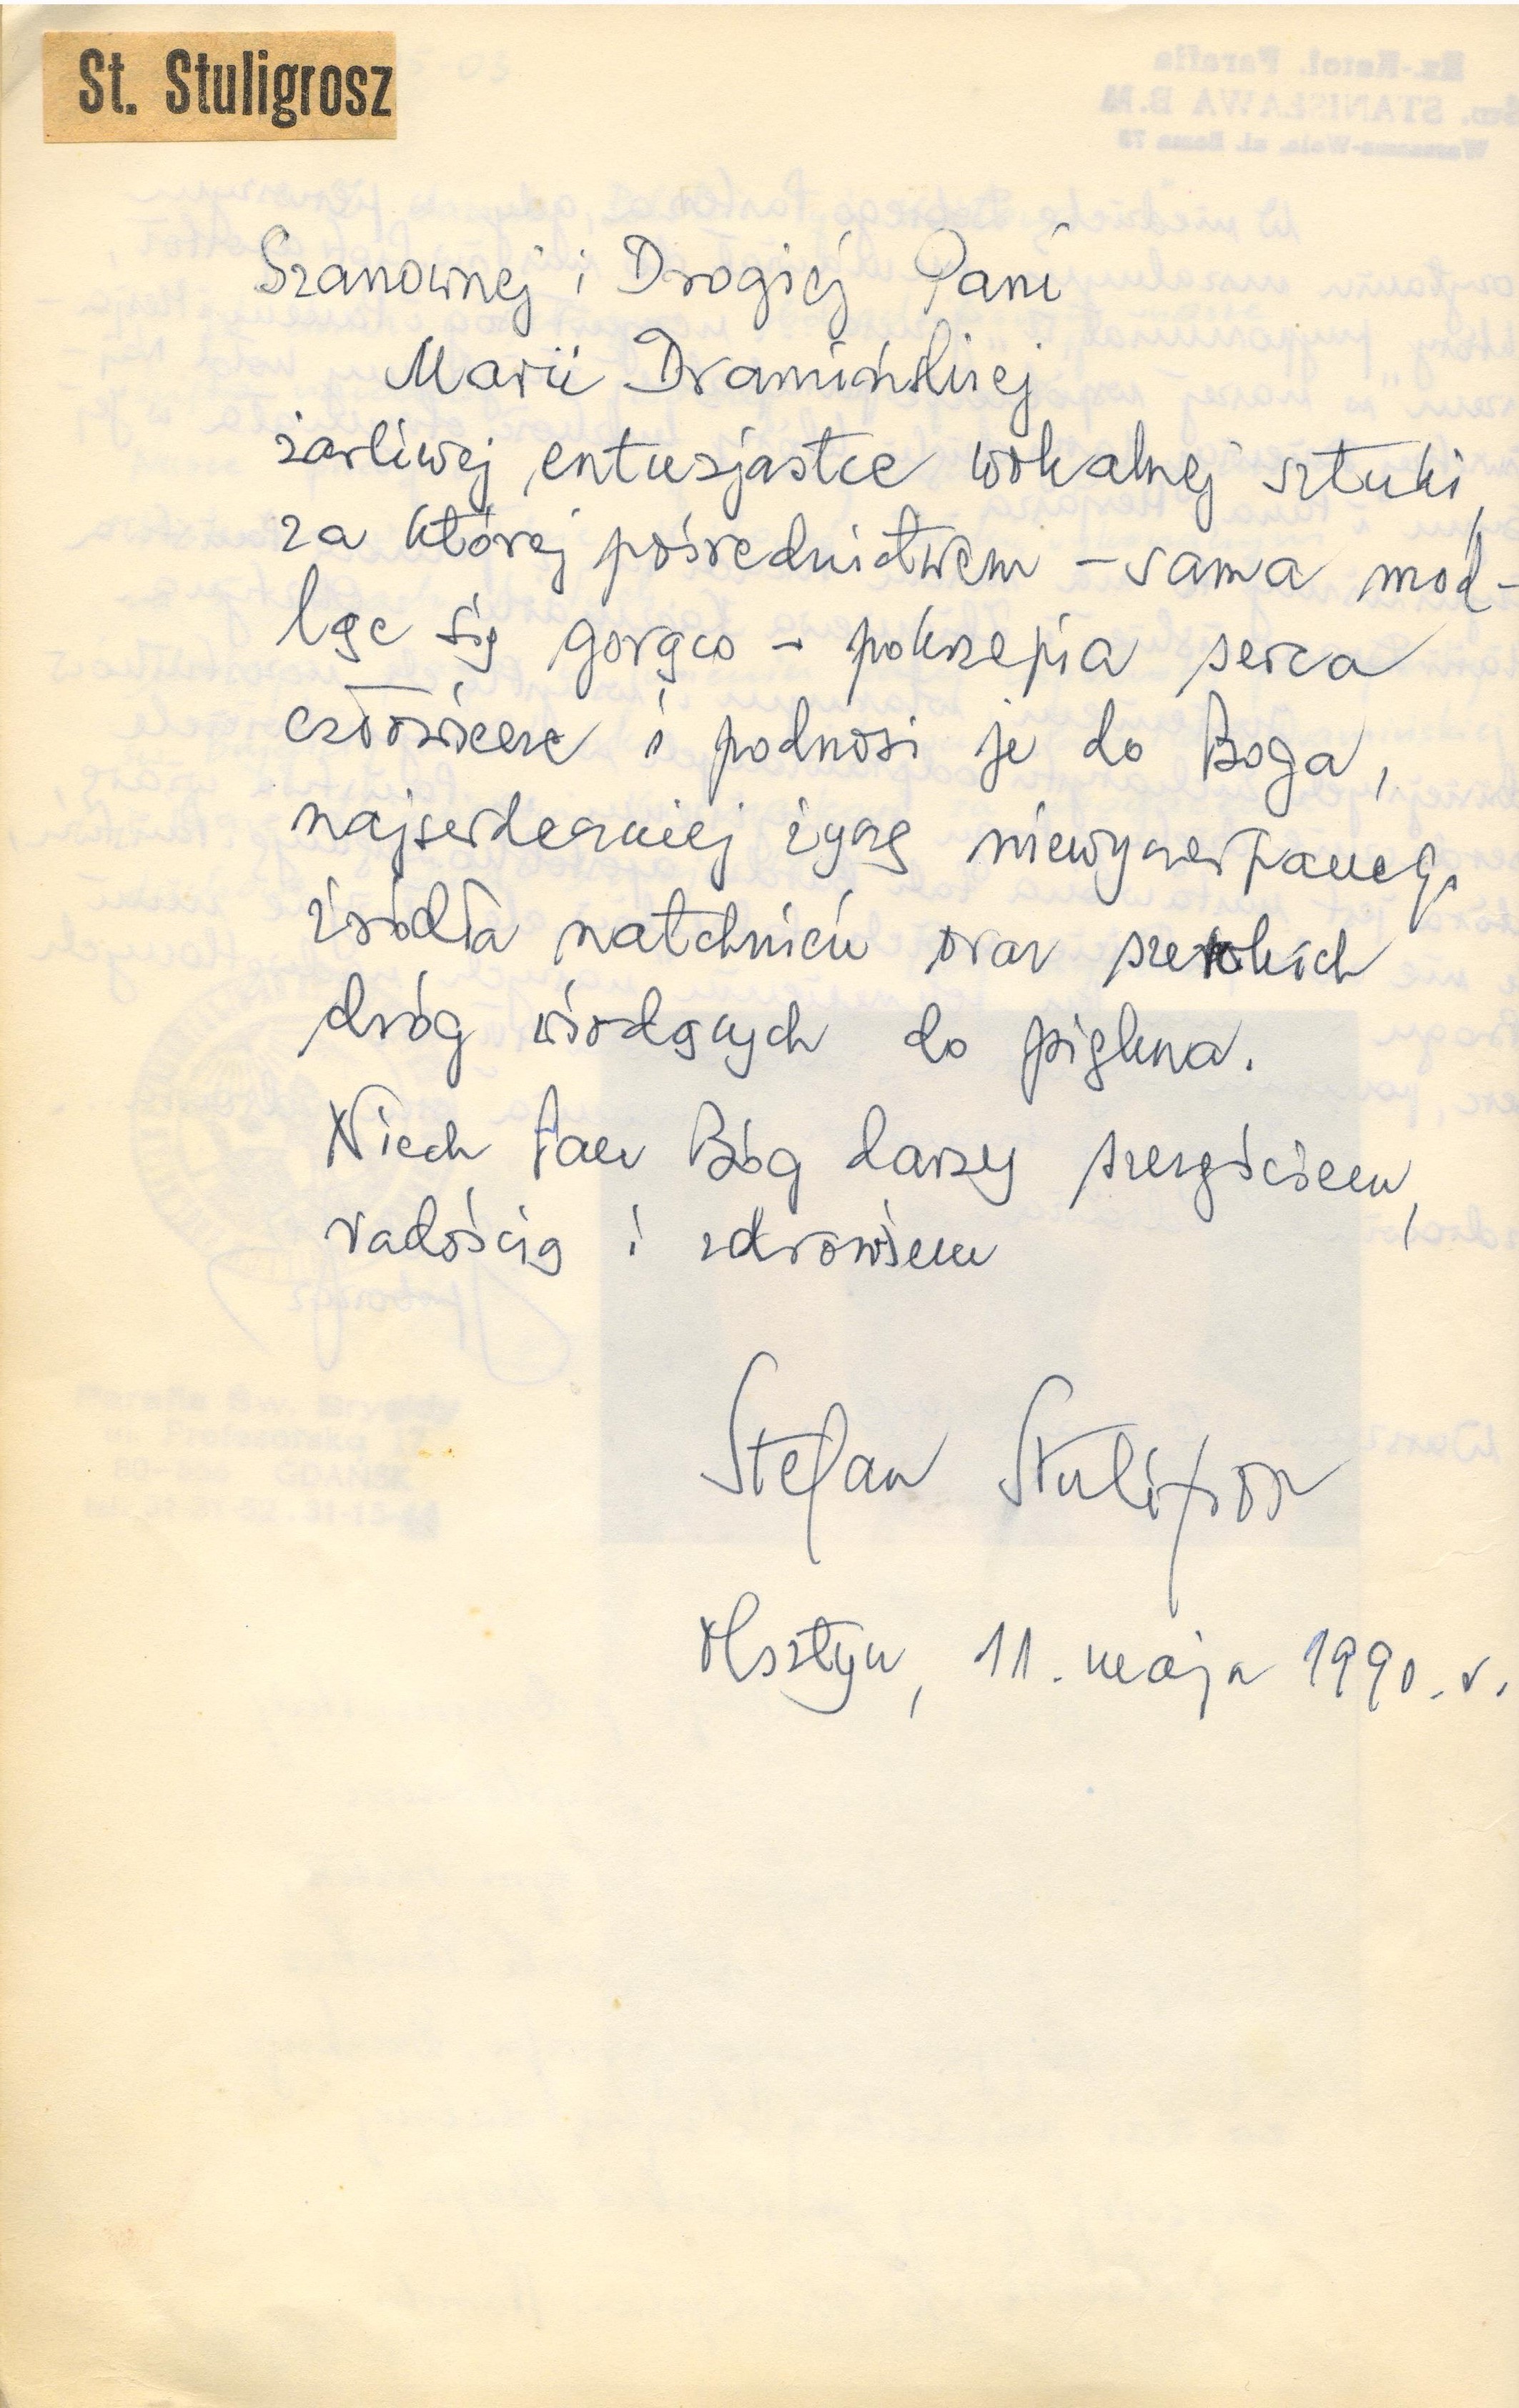 St. Stuligrosz
Szanownej i Drogiej Pani
Marii Dramińskiej
żarliwej entuzjastce wokalnej sztuki,
za której pośrednictwem - sama mod-
ląc się gorąco - pokrzepia serca
człowiecze i podnosi je do Boga,
najserdeczniej życzę niewyczerpanego
źródła natchnień oraz szerokich
dróg wiodących do piękna.
Niech Pan Bóg darzy szczęściem,
radością i zdrowiem
Stefan Stuligrosz
Olsztyn, 11. maja 1990. r.